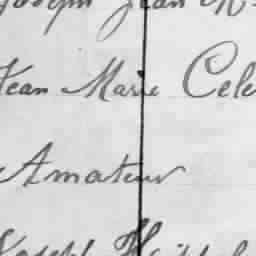 Joseph Jean
Jean Marie Cele
Amateur
Joseph